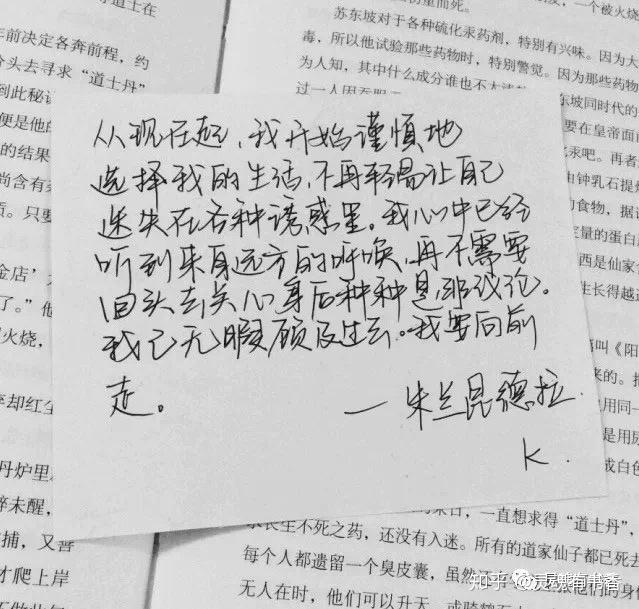 道士在
年前决定各奔前程,约
分头去寻求“道士丹”
到此秘
便是他的
的结果
尚含有
质。只要
金店’
了。”他
火烧,
卒却红
丹炉里
醉未醒,
捕,又善
才爬上岸
苏东坡对于各种硫化汞药剂,特别有兴味。因为大
毒,所以他试验那些药物时,特别警觉。因为那些药物
为人知,其中什么成分谁也不太清楚
东坡同时代的
要在皇帝面
汞吧。再者
由钟乳石提
的食物,据
定量的蛋白
西是仙家
生长得越
叫《阳
来的。
用同一
是用原
成白色
从现在起,我开始谨慎地
选择我的生活,不再轻易让自己
迷失在各种诱惑里。我心中已经
听到来自远方的呼唤,再不需要
回头去关心身后种种是非议论。
我已无暇顾及过去。我要向前
走。
— 米兰昆德拉
K.
一直想求得“道士丹”,
求长生不死之药,还没有入迷。所有的道家仙子都已死去
每个人都遗留一个臭皮囊,虽然
无人在时,他们可以升天,或骑鹤
知乎